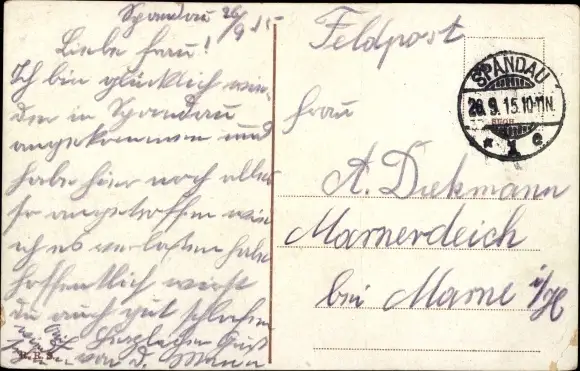 Spandau 26/9 15
Liebe Frau!
Ich bin glücklich wie-
der in Spandau
angekommen und
habe hier noch alles
so angetroffen wie
ich es verlassen habe
hoffentlich wirst
du auch gut schlafen
Herzlichen Gruß
von d. Mann
Feldpost
Frau
A. Diekmann
Marnerdeich
bei Marne i/H
SPANDAU
26.9.15.10-11N.
* 1 e